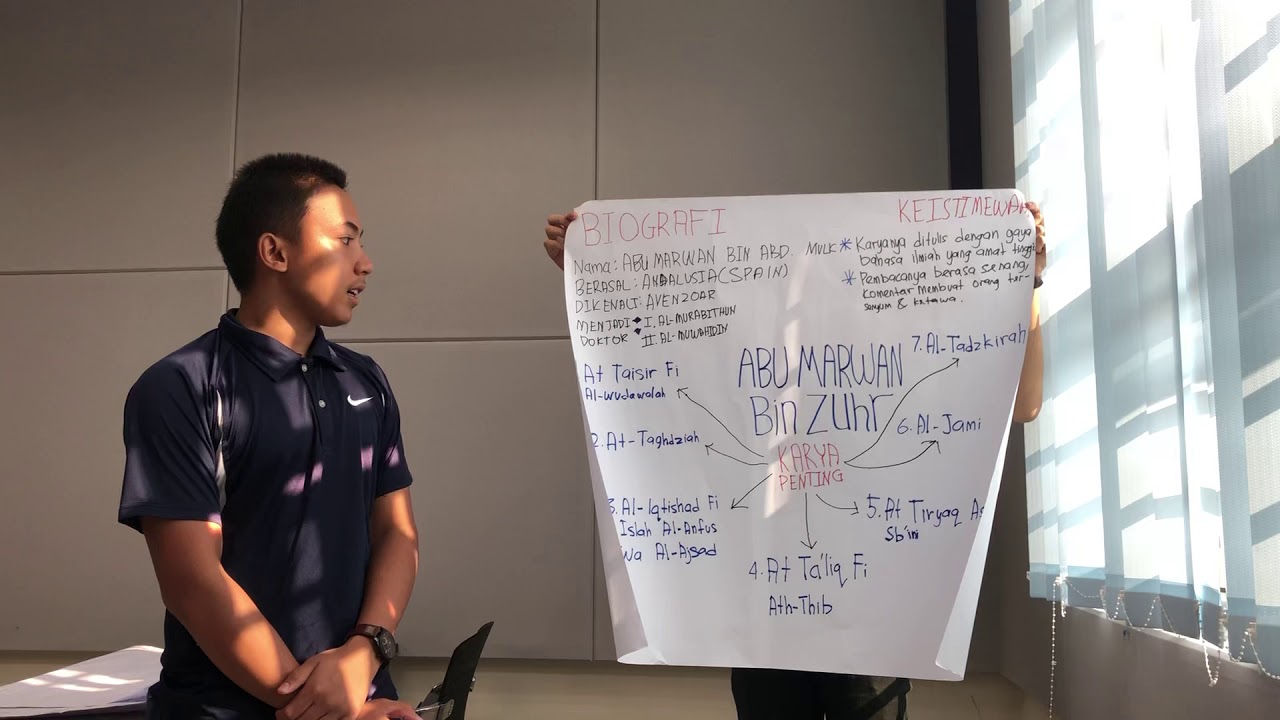 BIOGRAFI
Nama: ABU MARWAN BIN ABD. MULK
BERASAL: ANDALUSIA (SPAIN)
DIKENALI: AVENZOAR
MENJADI I. AL-MURABITHUN
DOKTOR II. AL-MUWAHIDIN
KEISTIMEWA
* Karyanya ditulis dengan gaya
bahasa ilmiah yang amat tinggi
* Pembacanya berasa senang,
komentar membuat orang ter-
senyum & ketawa.
ABU MARWAN
Bin Zuhr
KARYA
PENTING
At Taisir Fi
Al-Wudawalah
2. At-Taghdziah
3. Al-Iqtishad Fi
Islah Al-Anfus
Wa Al-Ajsad
4. At Ta'liq Fi
Ath-Thib
5. At Tiryaq As
Sb'ini
6. Al-Jami
7. Al-Tadzkirah